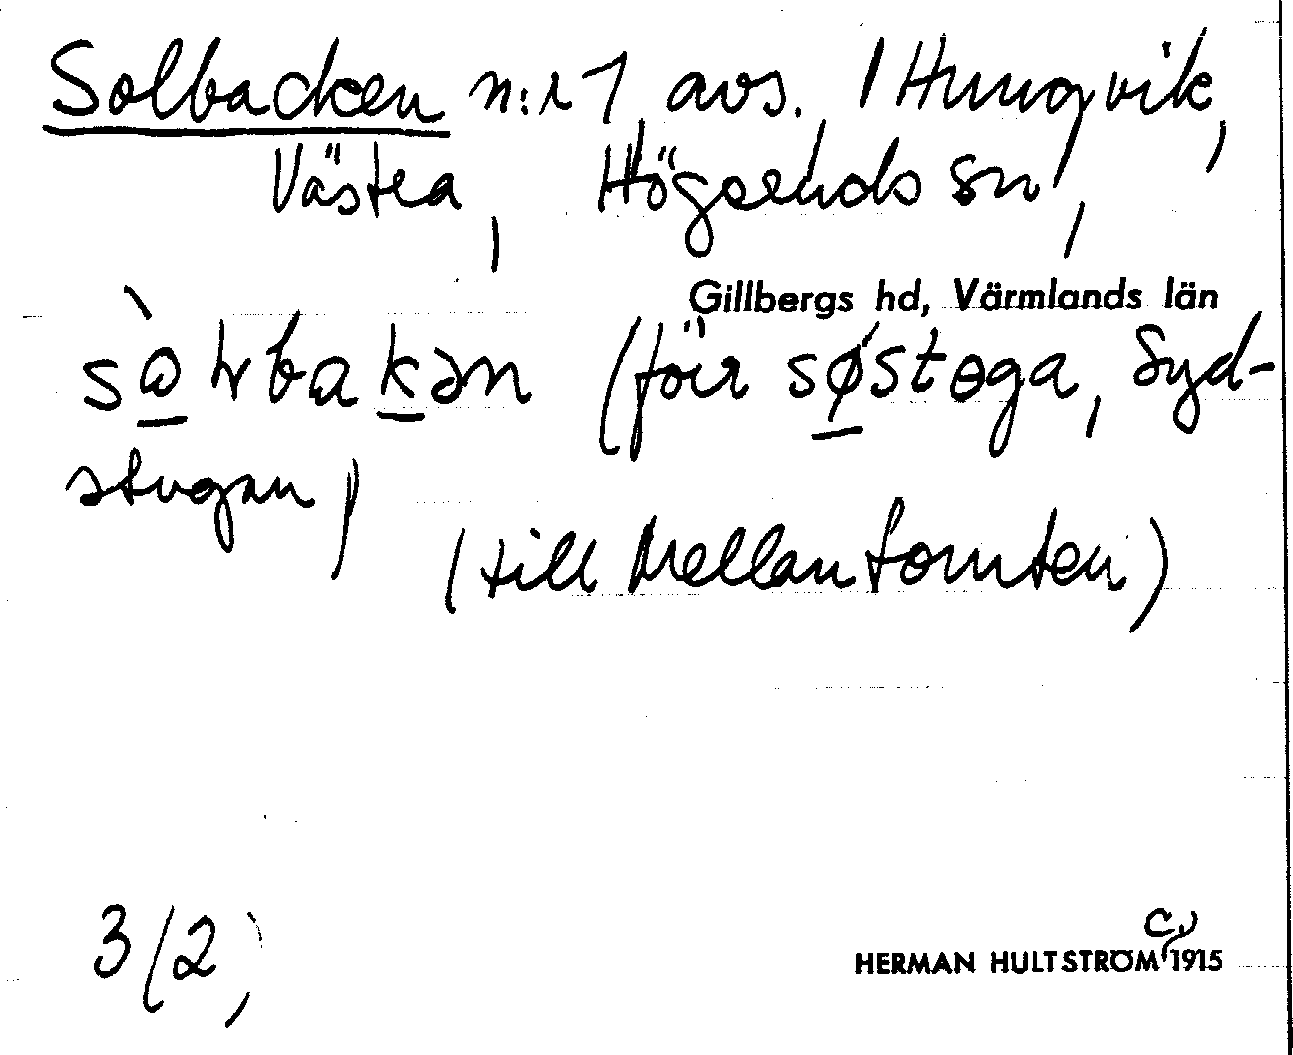 Solbacken n:r 1 avs. / Hungvik,
Västra, Högsäters sn,
Gillbergs hd, Värmlands län
(för søstoga, Syd-
stugan)
(till Mellantomten)
3/2,
HERMAN HULTSTRÖM 1915